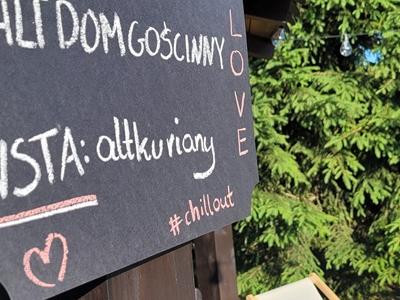 DOM GOŚCINNY
LOVE
ISTA: altkuriany
#chillout